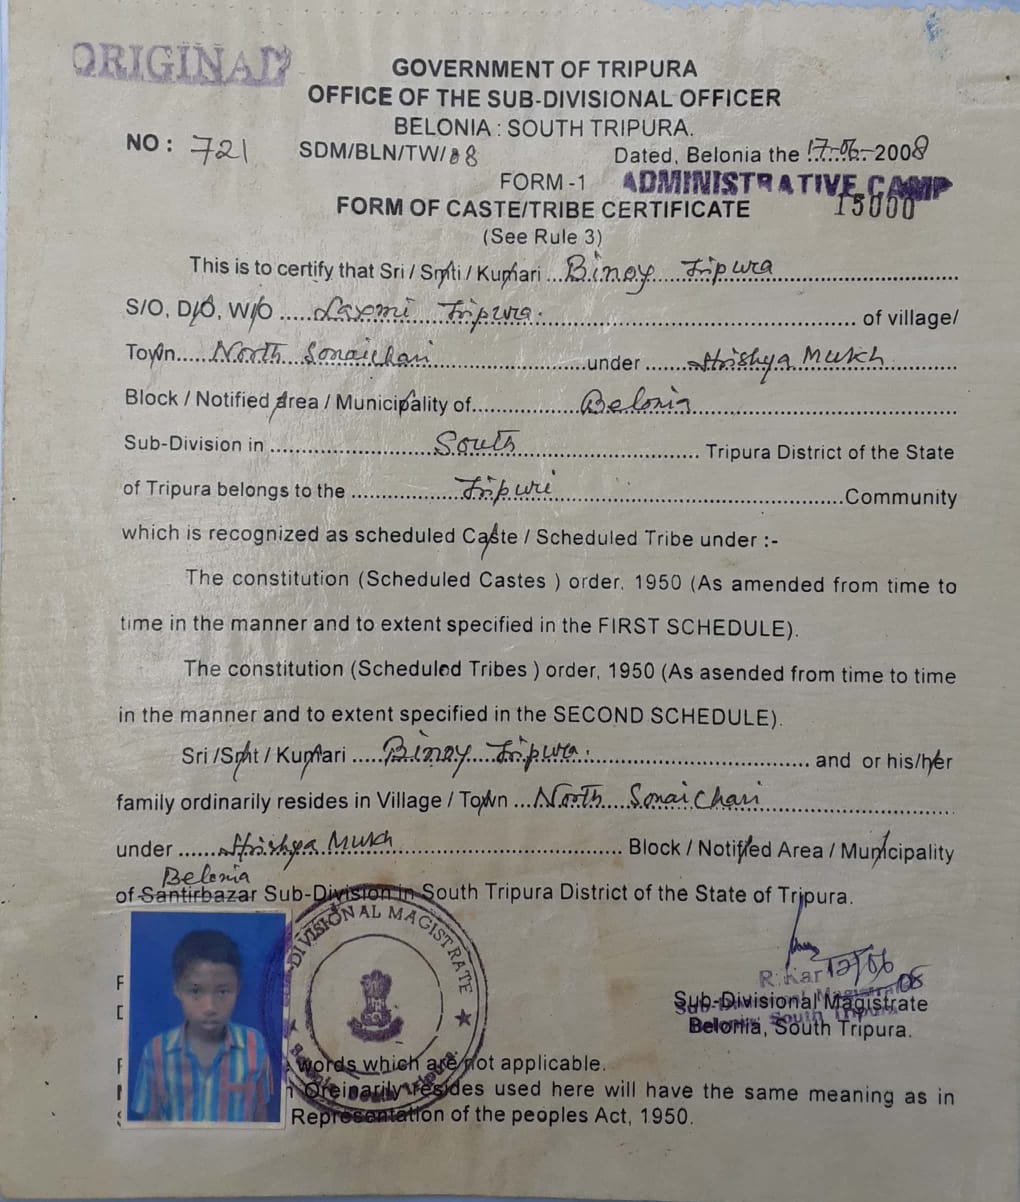 ORIGINAL
GOVERNMENT OF TRIPURA
OFFICE OF THE SUB-DIVISIONAL OFFICER
BELONIA : SOUTH TRIPURA.
NO : 721 SDM/BLN/TW/88 Dated, Belonia the 17-06-2008
FORM -1 ADMINISTRATIVE CAMP
15000
FORM OF CASTE/TRIBE CERTIFICATE
(See Rule 3)
This is to certify that Sri / Smti / Kumari ...Binoy Tripura
S/O, D/O, W/O .....Laxmi Tripura. of village/
Town.....North Sonaichari under Hrishya Mukh
Block / Notified Area / Municipality of Belonia
Sub-Division in South Tripura District of the State
of Tripura belongs to the Tripuri Community
which is recognized as scheduled Caste / Scheduled Tribe under :-
The constitution (Scheduled Castes ) order, 1950 (As amended from time to
time in the manner and to extent specified in the FIRST SCHEDULE).
The constitution (Scheduled Tribes ) order, 1950 (As asended from time to time
in the manner and to extent specified in the SECOND SCHEDULE).
Sri /Smt / Kumari .....Binoy Tripura. and or his/her
family ordinarily resides in Village / Town ...North Sonaichari
under Hrishya Mukh Block / Notified Area / Municipality
Belonia
of Santirbazar Sub-Division in South Tripura District of the State of Tripura.
SUB-DIVISIONAL MAGISTRATE
Belonia, South Tripura.
R. Kar 17/06/08
Sub-Divisional Magistrate
Sub-Divisional Magistrate
Belonia, South Tripura
Belonia, South Tripura.
words which are not applicable.
Oreinarily resides used here will have the same meaning as in
Representation of the peoples Act, 1950.